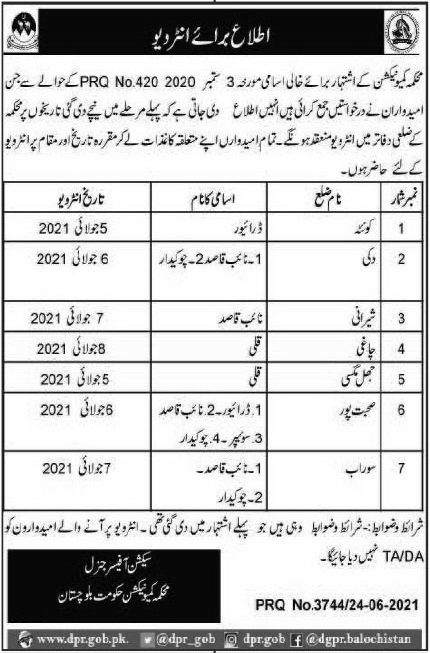 اطلاع برائے انٹرویو
محکمہ کمیونیکشن کے اشتہار برائے خالی اسامی مورخہ 3 ستمبر 2020 PRQ No.420 کے حوالے سے جن
امیدواران نے درخواستیں جمع کرائی ہیں انہیں اطلاع دی جاتی ہے کہ پہلے مرحلے میں نیچے دی گئی تاریخوں پر محکمہ
کے ضلعی دفاتر میں انٹرویو منعقد ہونگے۔ تمام امیدواراں اپنے متعلقہ کاغذات لے کر مقررہ تاریخ اور مقام پر انٹرویو
کے لئے حاضر ہوں۔
نمبر شمار نام ضلع اسامی کا نام تاریخ انٹرویو
1 کوئٹہ ڈرائیور 5 جولائی 2021
2 دکی 1۔ نائب قاصد 2۔ چوکیدار 6 جولائی 2021
3 شیرانی نائب قاصد 7 جولائی 2021
4 چاغی قلی 8 جولائی 2021
5 جھل مگسی قلی 5 جولائی 2021
6 صحبت پور 1. ڈرائیور۔ 2. نائب قاصد 6 جولائی 2021
3. سوئیپر۔ 4. چوکیدار
7 سوراب 1۔ نائب قاصد۔ 7 جولائی 2021
2۔ چوکیدار
شرائط و ضوابط:۔ شرائط و ضوابط وہی ہیں جو پہلے اشتہار میں دی گئی تھی۔ انٹرویو پر آنے والے امیدوارون کو
TA/DA نہیں دیا جائیگا۔
سیکشن آفیسر جنرل
محکمہ کمیونیکشن حکومت بلوچستان
PRQ No.3744/24-06-2021
www.dpr.gob.pk. @dpr_gob dpr.gob @dgpr.balochistan